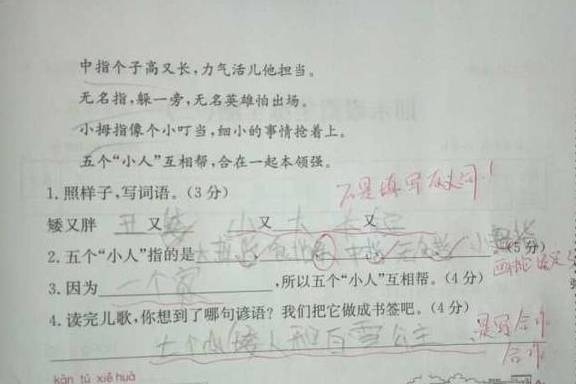 中指个子高又长,力气活儿他担当。
无名指,躲一旁,无名英雄怕出场。
小拇指像个小叮当,细小的事情抢着上。
五个“小人”互相帮,合在一起本领强。
1.照样子,写词语。(3分)
不是填写反义词!
矮又胖 丑又 小又大 又
2.五个“小人”指的是 大 食 中指 小 (5分)
3.因为一个家,所以五个“小人”互相帮。(4分)
4.读完儿歌,你想到了哪句谚语?我们把它做成书签吧。(4分)
七个小矮人和白雪公主
kàn tú xiě huà